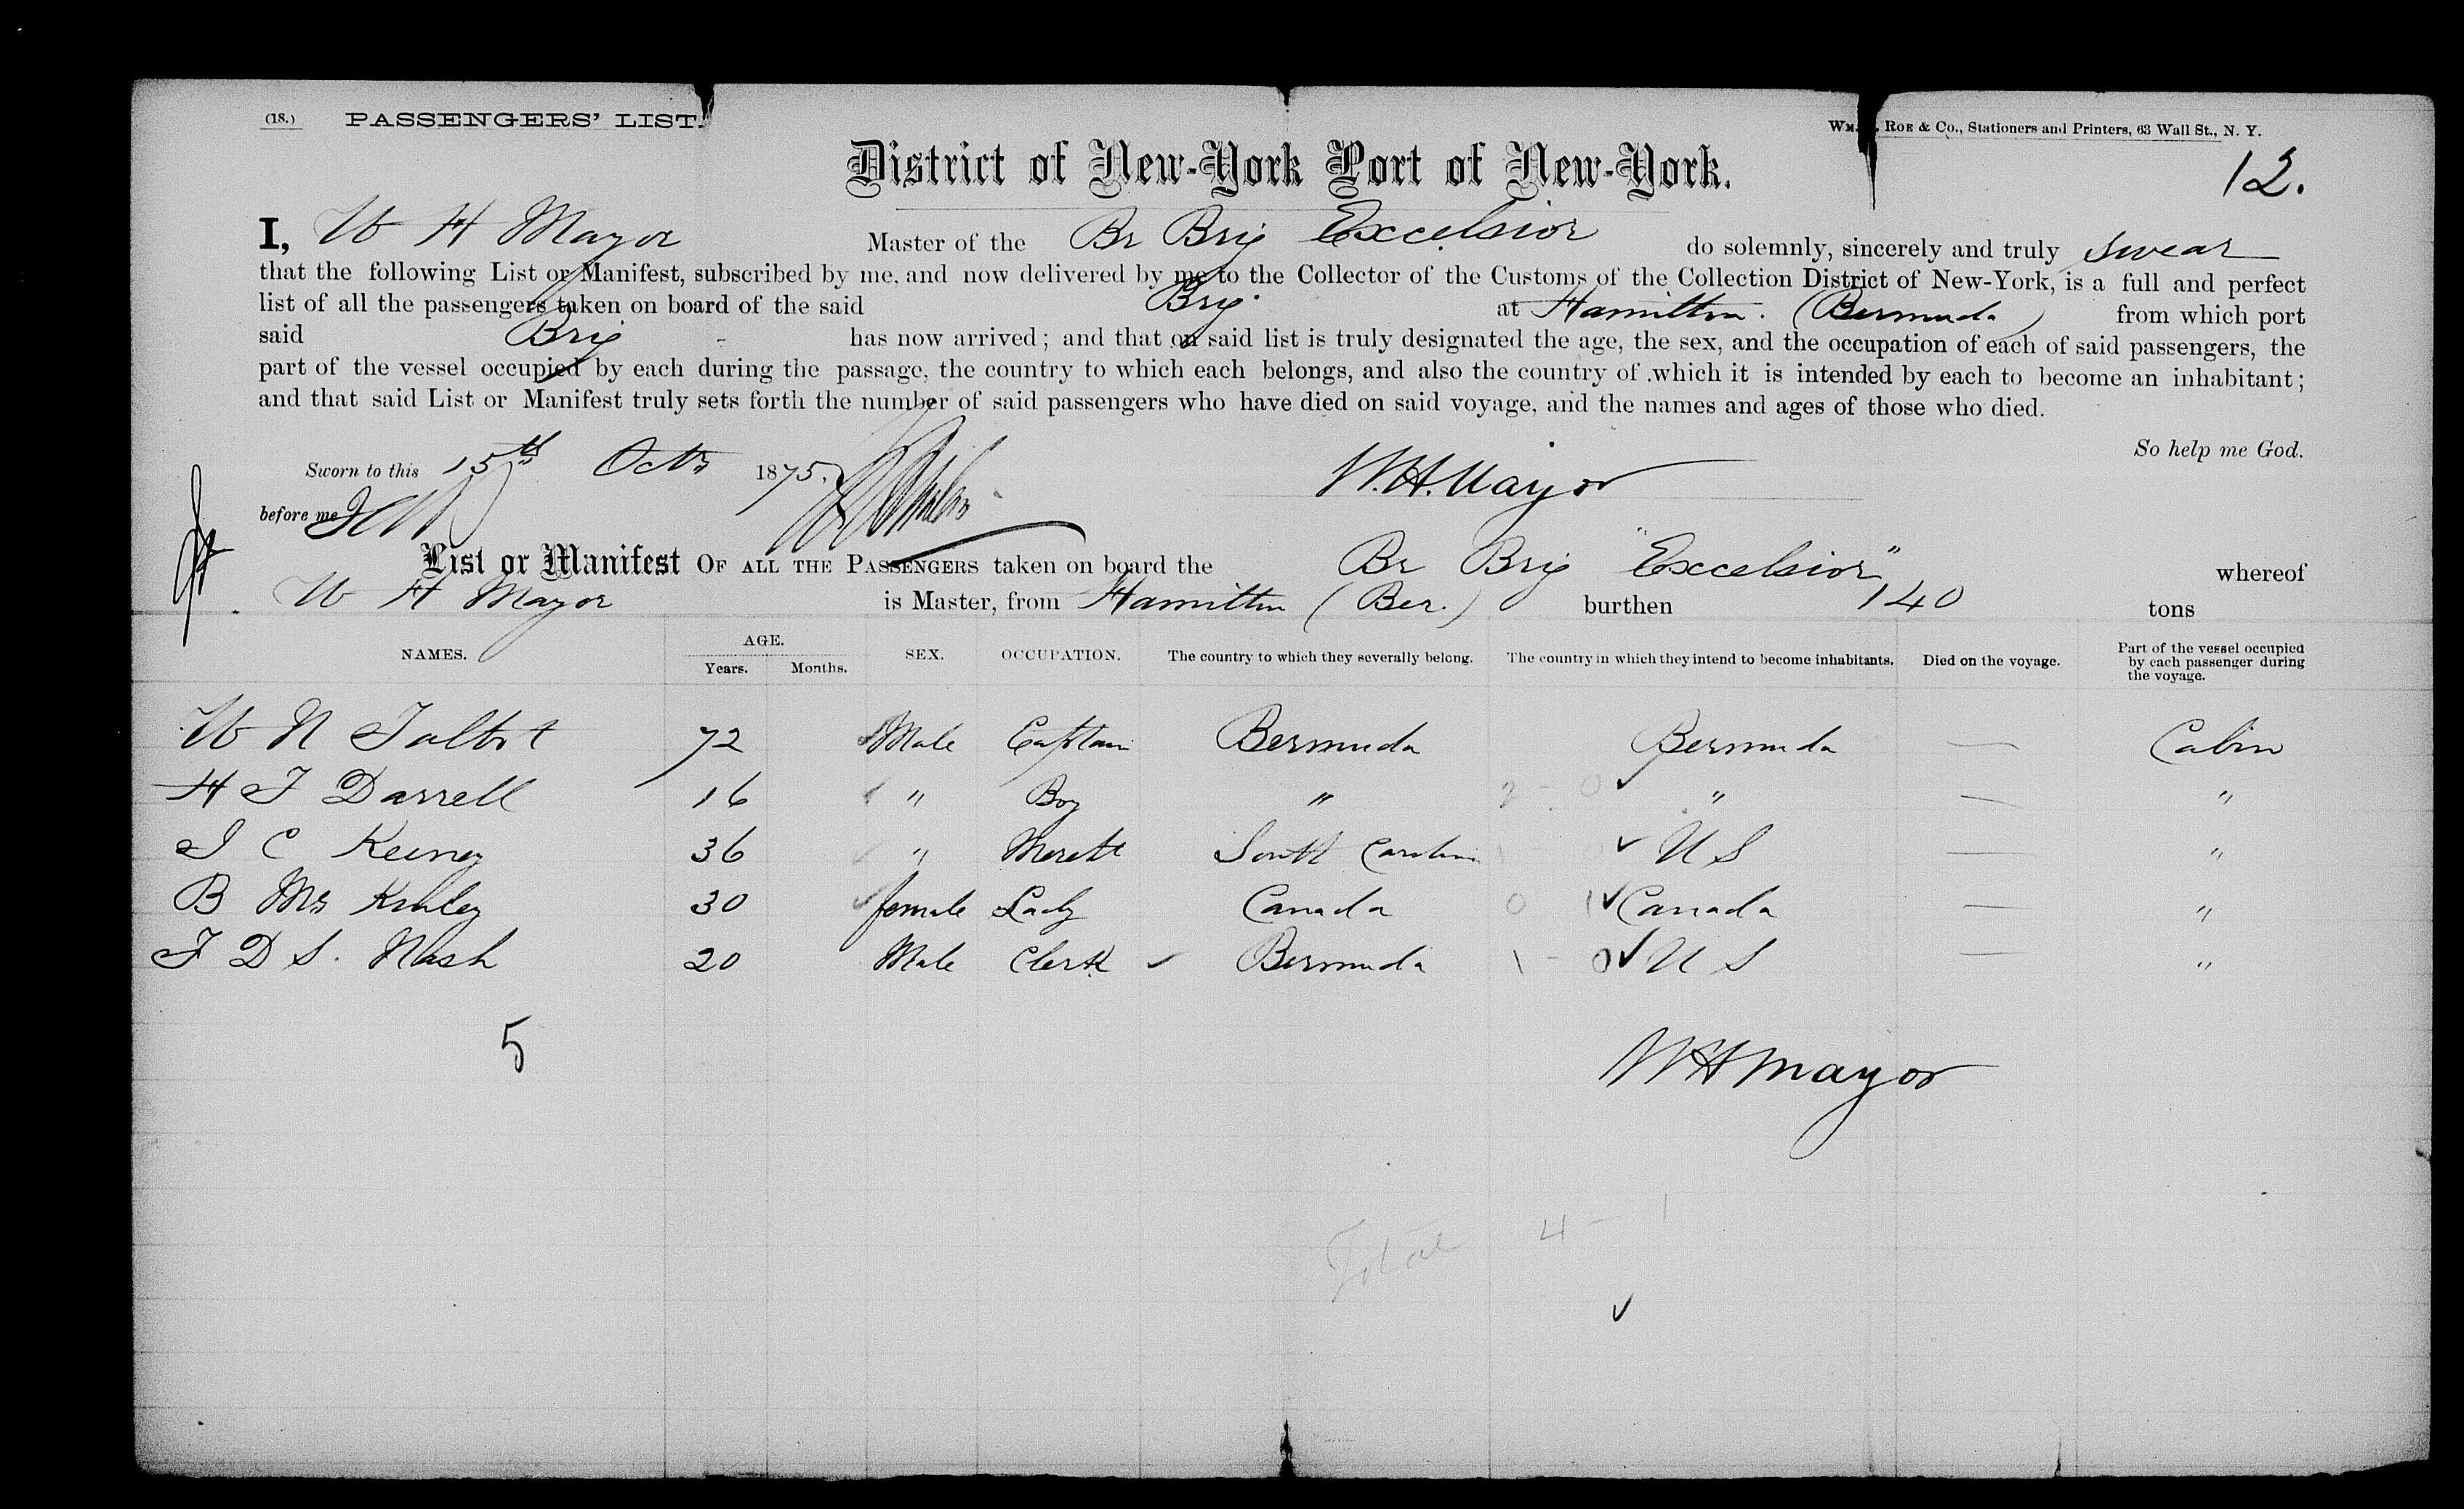 (18.) PASSENGERS' LIST.
WM. ROE & Co., Stationers and Printers, 63 Wall St., N. Y.
District of New-York Port of New-York.
12.
I, W H Mayor Master of the Br Brig Excelsior do solemnly, sincerely and truly swear
that the following List or Manifest, subscribed by me, and now delivered by me to the Collector of the Customs of the Collection District of New-York, is a full and perfect
list of all the passengers taken on board of the said Brig at Hamilton. (Bermuda) from which port
said Brig has now arrived; and that on said list is truly designated the age, the sex, and the occupation of each of said passengers, the
part of the vessel occupied by each during the passage, the country to which each belongs, and also the country of which it is intended by each to become an inhabitant;
and that said List or Manifest truly sets forth the number of said passengers who have died on said voyage, and the names and ages of those who died.
So help me God.
Sworn to this 15th Octr 1875. W.H. Mayor
before me
List or Manifest OF ALL THE PASSENGERS taken on board the Br Brig "Excelsior" whereof
W H Mayor is Master, from Hamilton (Ber.) burthen 140 tons
NAMES. AGE. Years. Months. SEX. OCCUPATION. The country to which they severally belong. The country in which they intend to become inhabitants. Died on the voyage. Part of the vessel occupied by each passenger during the voyage.
W N Talbot 72 Male Captain Bermuda Bermuda — Cabin
H T Darrell 16 " Boy " 2 - 0 ✓ " — "
J C Keeney 36 " Mercht South Carolina 1 ✓ U S — "
B Mrs 30 female Lady Canada 0 1 ✓ Canada — "
F D S. Nash 20 Male Clerk ✓ Bermuda 1 - 0 ✓ U S — "
5
W H Mayor
Total 4 - 1
✓